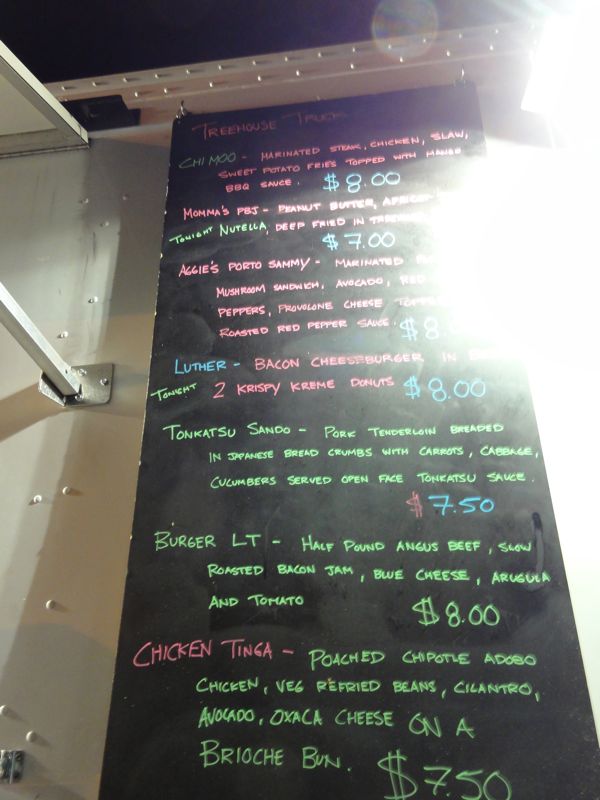 TREEHOUSE TRUCK
CHI MOO - MARINATED STEAK, CHICKEN, SLAW,
SWEET POTATO FRIES TOPPED WITH MANGO
BBQ SAUCE. $8.00
MOMMA'S PBJ - PEANUT BUTTER, APRICOT
TONIGHT NUTELLA, DEEP FRIED IN
$7.00
AGGIE'S PORTO SAMMY - MARINATED
MUSHROOM SANDWICH, AVOCADO, RED
PEPPERS, PROVOLONE CHEESE
ROASTED RED PEPPER SAUCE. $8.
LUTHER - BACON CHEESEBURGER IN
TONIGHT 2 KRISPY KREME DONUTS $8.00
TONKATSU SANDO - PORK TENDERLOIN BREADED
IN JAPANESE BREAD CRUMBS WITH CARROTS, CABBAGE,
CUCUMBERS SERVED OPEN FACE TONKATSU SAUCE.
$7.50
BURGER LT - HALF POUND ANGUS BEEF, SLOW
ROASTED BACON JAM, BLUE CHEESE, ARUGULA
AND TOMATO $8.00
CHICKEN TINGA - POACHED CHIPOTLE ADOBO
CHICKEN, VEG REFRIED BEANS, CILANTRO,
AVOCADO, OXACA CHEESE ON A
BRIOCHE BUN. $7.50